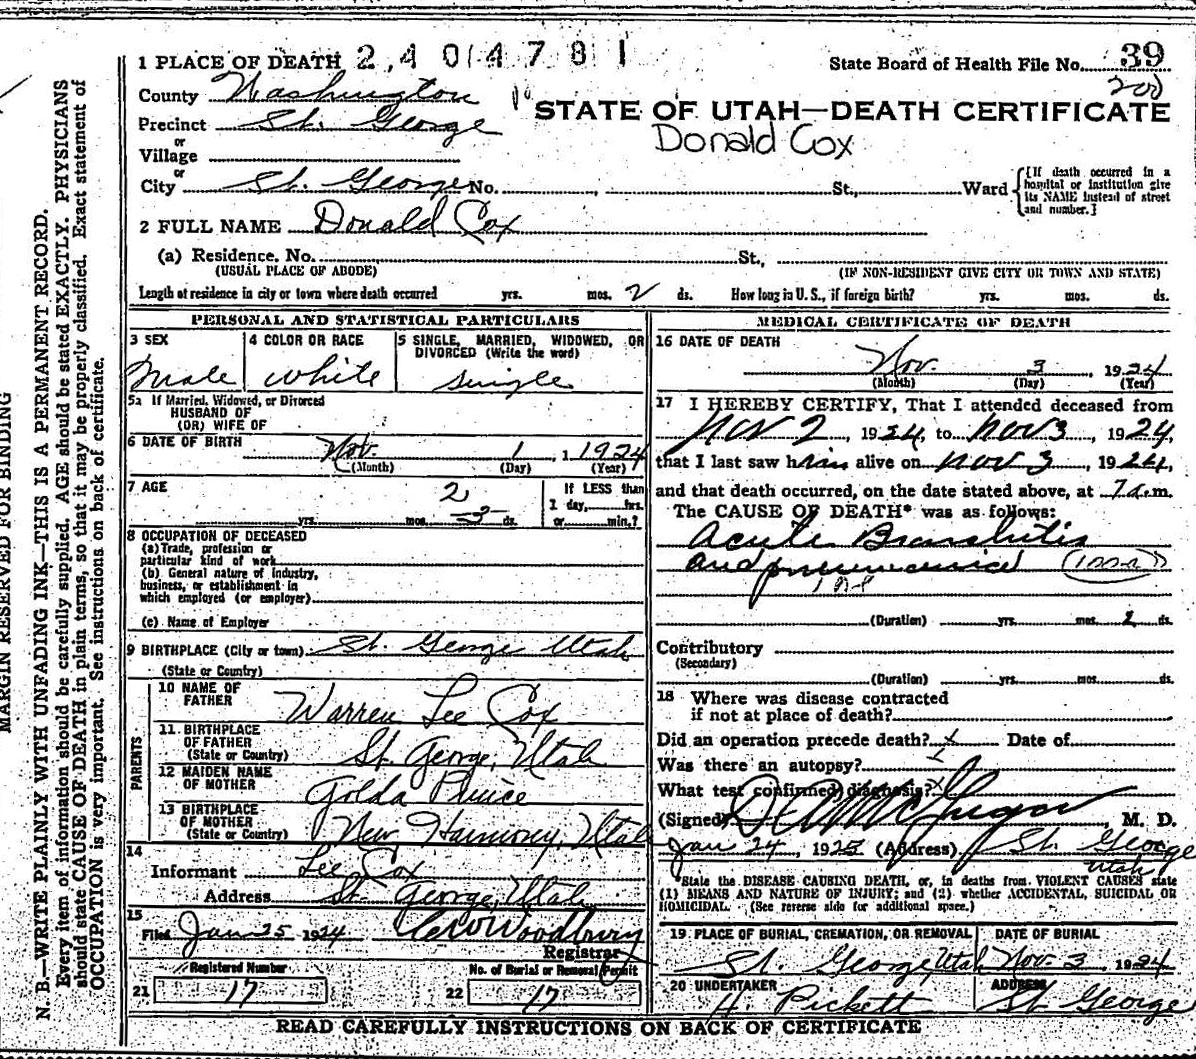 1 PLACE OF DEATH 2,404781
State Board of Health File No. 39
200
County Washington
STATE OF UTAH—DEATH CERTIFICATE
Precinct St. George
Donald Cox
or
Village
or
City St. George No. , St., Ward {[If death occurred in a hospital or institution give its NAME instead of street and number.]
2 FULL NAME Donald Cox
(a) Residence. No. St.,
(USUAL PLACE OF ABODE) (IF NON-RESIDENT GIVE CITY OR TOWN AND STATE)
Length of residence in city or town where death occurred yrs. mos. 2 ds. How long in U. S., if foreign birth? yrs. mos. ds.
PERSONAL AND STATISTICAL PARTICULARS
3 SEX
Male
4 COLOR OR RACE
White
5 SINGLE, MARRIED, WIDOWED, OR
DIVORCED (Write the word)
single
5a If Married, Widowed, or Divorced
HUSBAND OF
(OR) WIFE OF
6 DATE OF BIRTH Nov. 1, 1924
(Month) (Day) (Year)
7 AGE 2
yrs. mos. 3 ds.
If LESS than
1 day, hrs.
or min.?
8 OCCUPATION OF DECEASED
(a) Trade, profession or
particular kind of work
(b) General nature of industry,
business, or establishment in
which employed (or employer)
(c) Name of Employer
9 BIRTHPLACE (City or town) St. George Utah
(State or Country)
PARENTS
10 NAME OF
FATHER Warren Lee Cox
11 BIRTHPLACE
OF FATHER
(State or Country) St. George, Utah
12 MAIDEN NAME
OF MOTHER Golda
13 BIRTHPLACE
OF MOTHER
(State or Country) New Harmony, Utah
14
Informant Lee Cox
Address St. George, Utah
15
Filed Jan 25 1924 Woodbury
Registrar
Registered Number
21 17
No. of Burial or Removal Permit
22 17
MEDICAL CERTIFICATE OF DEATH
16 DATE OF DEATH
Nov. 3, 1924
(Month) (Day) (Year)
17 I HEREBY CERTIFY, That I attended deceased from
Nov 2, 1924, to Nov 3, 1924,
that I last saw him alive on Nov 3, 1924,
and that death occurred, on the date stated above, at 7 a.m.
The CAUSE OF DEATH* was as follows:
Acute Bronchitis
and pneumonia
(Duration) yrs. mos. 2 ds.
Contributory
(Secondary)
(Duration) yrs. mos. ds.
18 Where was disease contracted
if not at place of death?
Did an operation precede death? x Date of
Was there an autopsy?
What test confirmed diagnosis?
(Signed) McGregor, M. D.
Jan 24, 1925 (Address) St. George
Utah
*State the DISEASE CAUSING DEATH, or, in deaths from VIOLENT CAUSES state
(1) MEANS AND NATURE OF INJURY; and (2) whether ACCIDENTAL, SUICIDAL OR
HOMICIDAL. (See reverse side for additional space.)
19 PLACE OF BURIAL, CREMATION, OR REMOVAL DATE OF BURIAL
St. George Utah Nov. 3, 1924
20 UNDERTAKER ADDRESS
H. Pickett St. George
READ CAREFULLY INSTRUCTIONS ON BACK OF CERTIFICATE
MARGIN RESERVED FOR BINDING
N. B.—WRITE PLAINLY WITH UNFADING INK—THIS IS A PERMANENT RECORD.
Every item of information should be carefully supplied. AGE should be stated EXACTLY. PHYSICIANS
should state CAUSE OF DEATH in plain terms, so that it may be properly classified. Exact statement of
OCCUPATION is very important. See instructions on back of certificate.